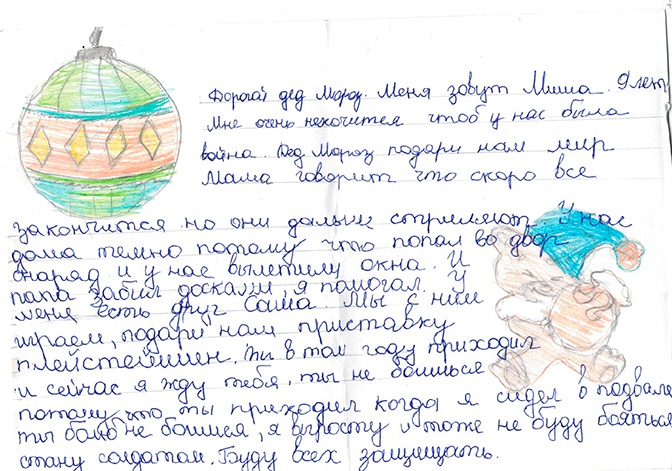 Дорогай дед Мороз. Меня зовут Миша. 9 лет
Мне очень нехочится чтоб у нас была
война. Дед Мороз подари нам мир
Мама говорит что скоро все
закончится но они дальше стриляют. У нас
дома темно потому что попал во двор
снаряд и у нас вылетили окна. И
папа забил досками, я помогал. У
меня есть друг Саша. Мы с ним
играем, подари нам приставку
плейстейшен. Ты в том году приходил
и сейчас я жду тебя, ты не боишься
потому что ты приходил когда я сидел в подвале
ты болю не боишся, я выросту и тоже не буду бояться
стану солдатам. Буду всех защещать.